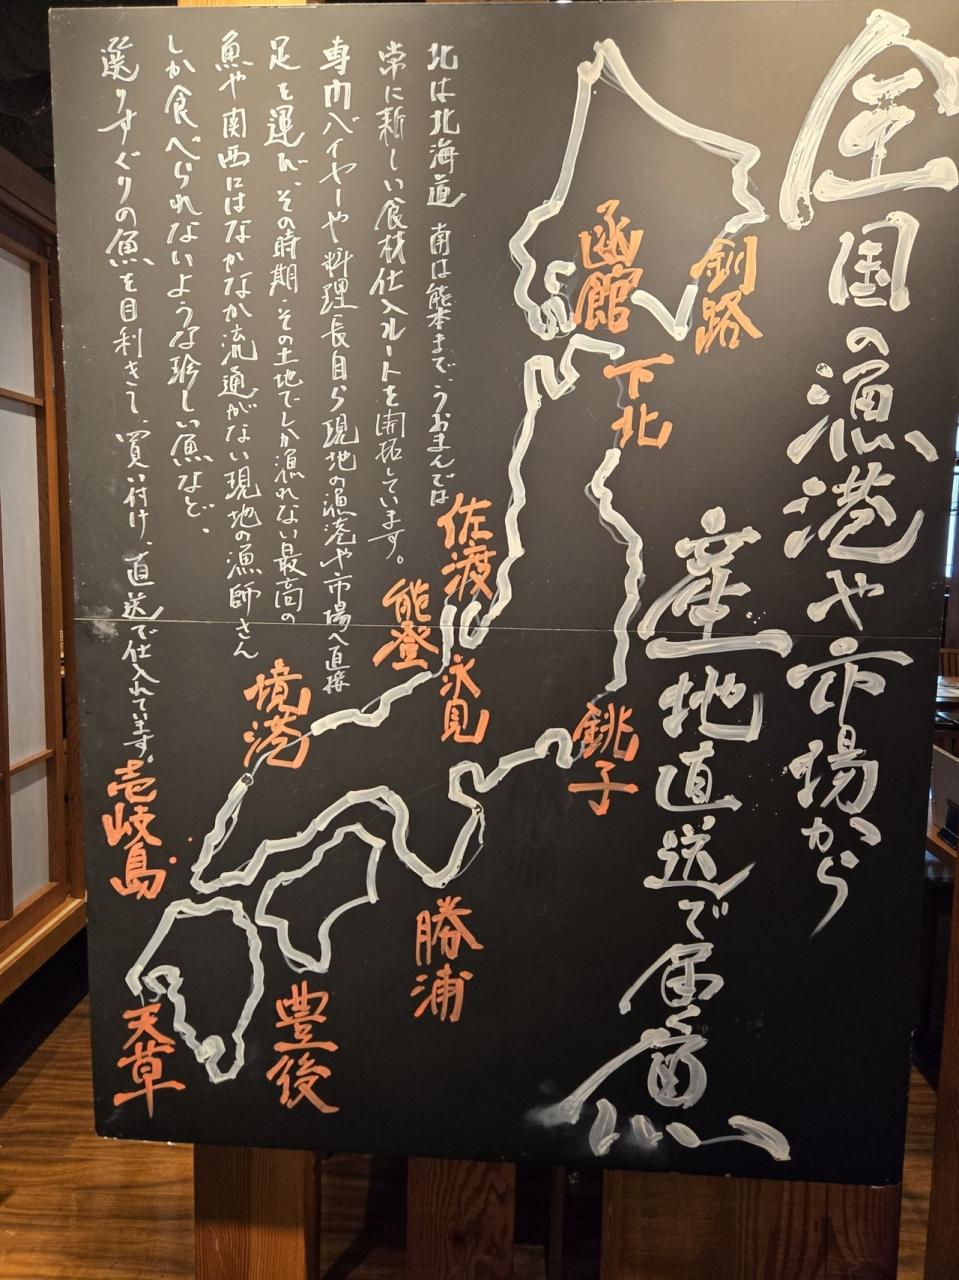 全国の漁港や市場から
産地直送で届く魚
北は北海道 南は熊本まで、うおまんでは
常に新しい食材仕入ルートを開拓しています。
専門バイヤーや料理長自ら現地の漁港や市場へ直接
足を運び、その時期・その土地でしか漁れない最高の
魚や関西にはなかなか流通がない現地の漁師さん
しか食べられないような珍しい魚など、
選りすぐりの魚を目利きして、買い付け、直送で仕入れています。
釧路
函館
下北
佐渡
能登
氷見
銚子
境港
壱岐島
勝浦
豊後
天草